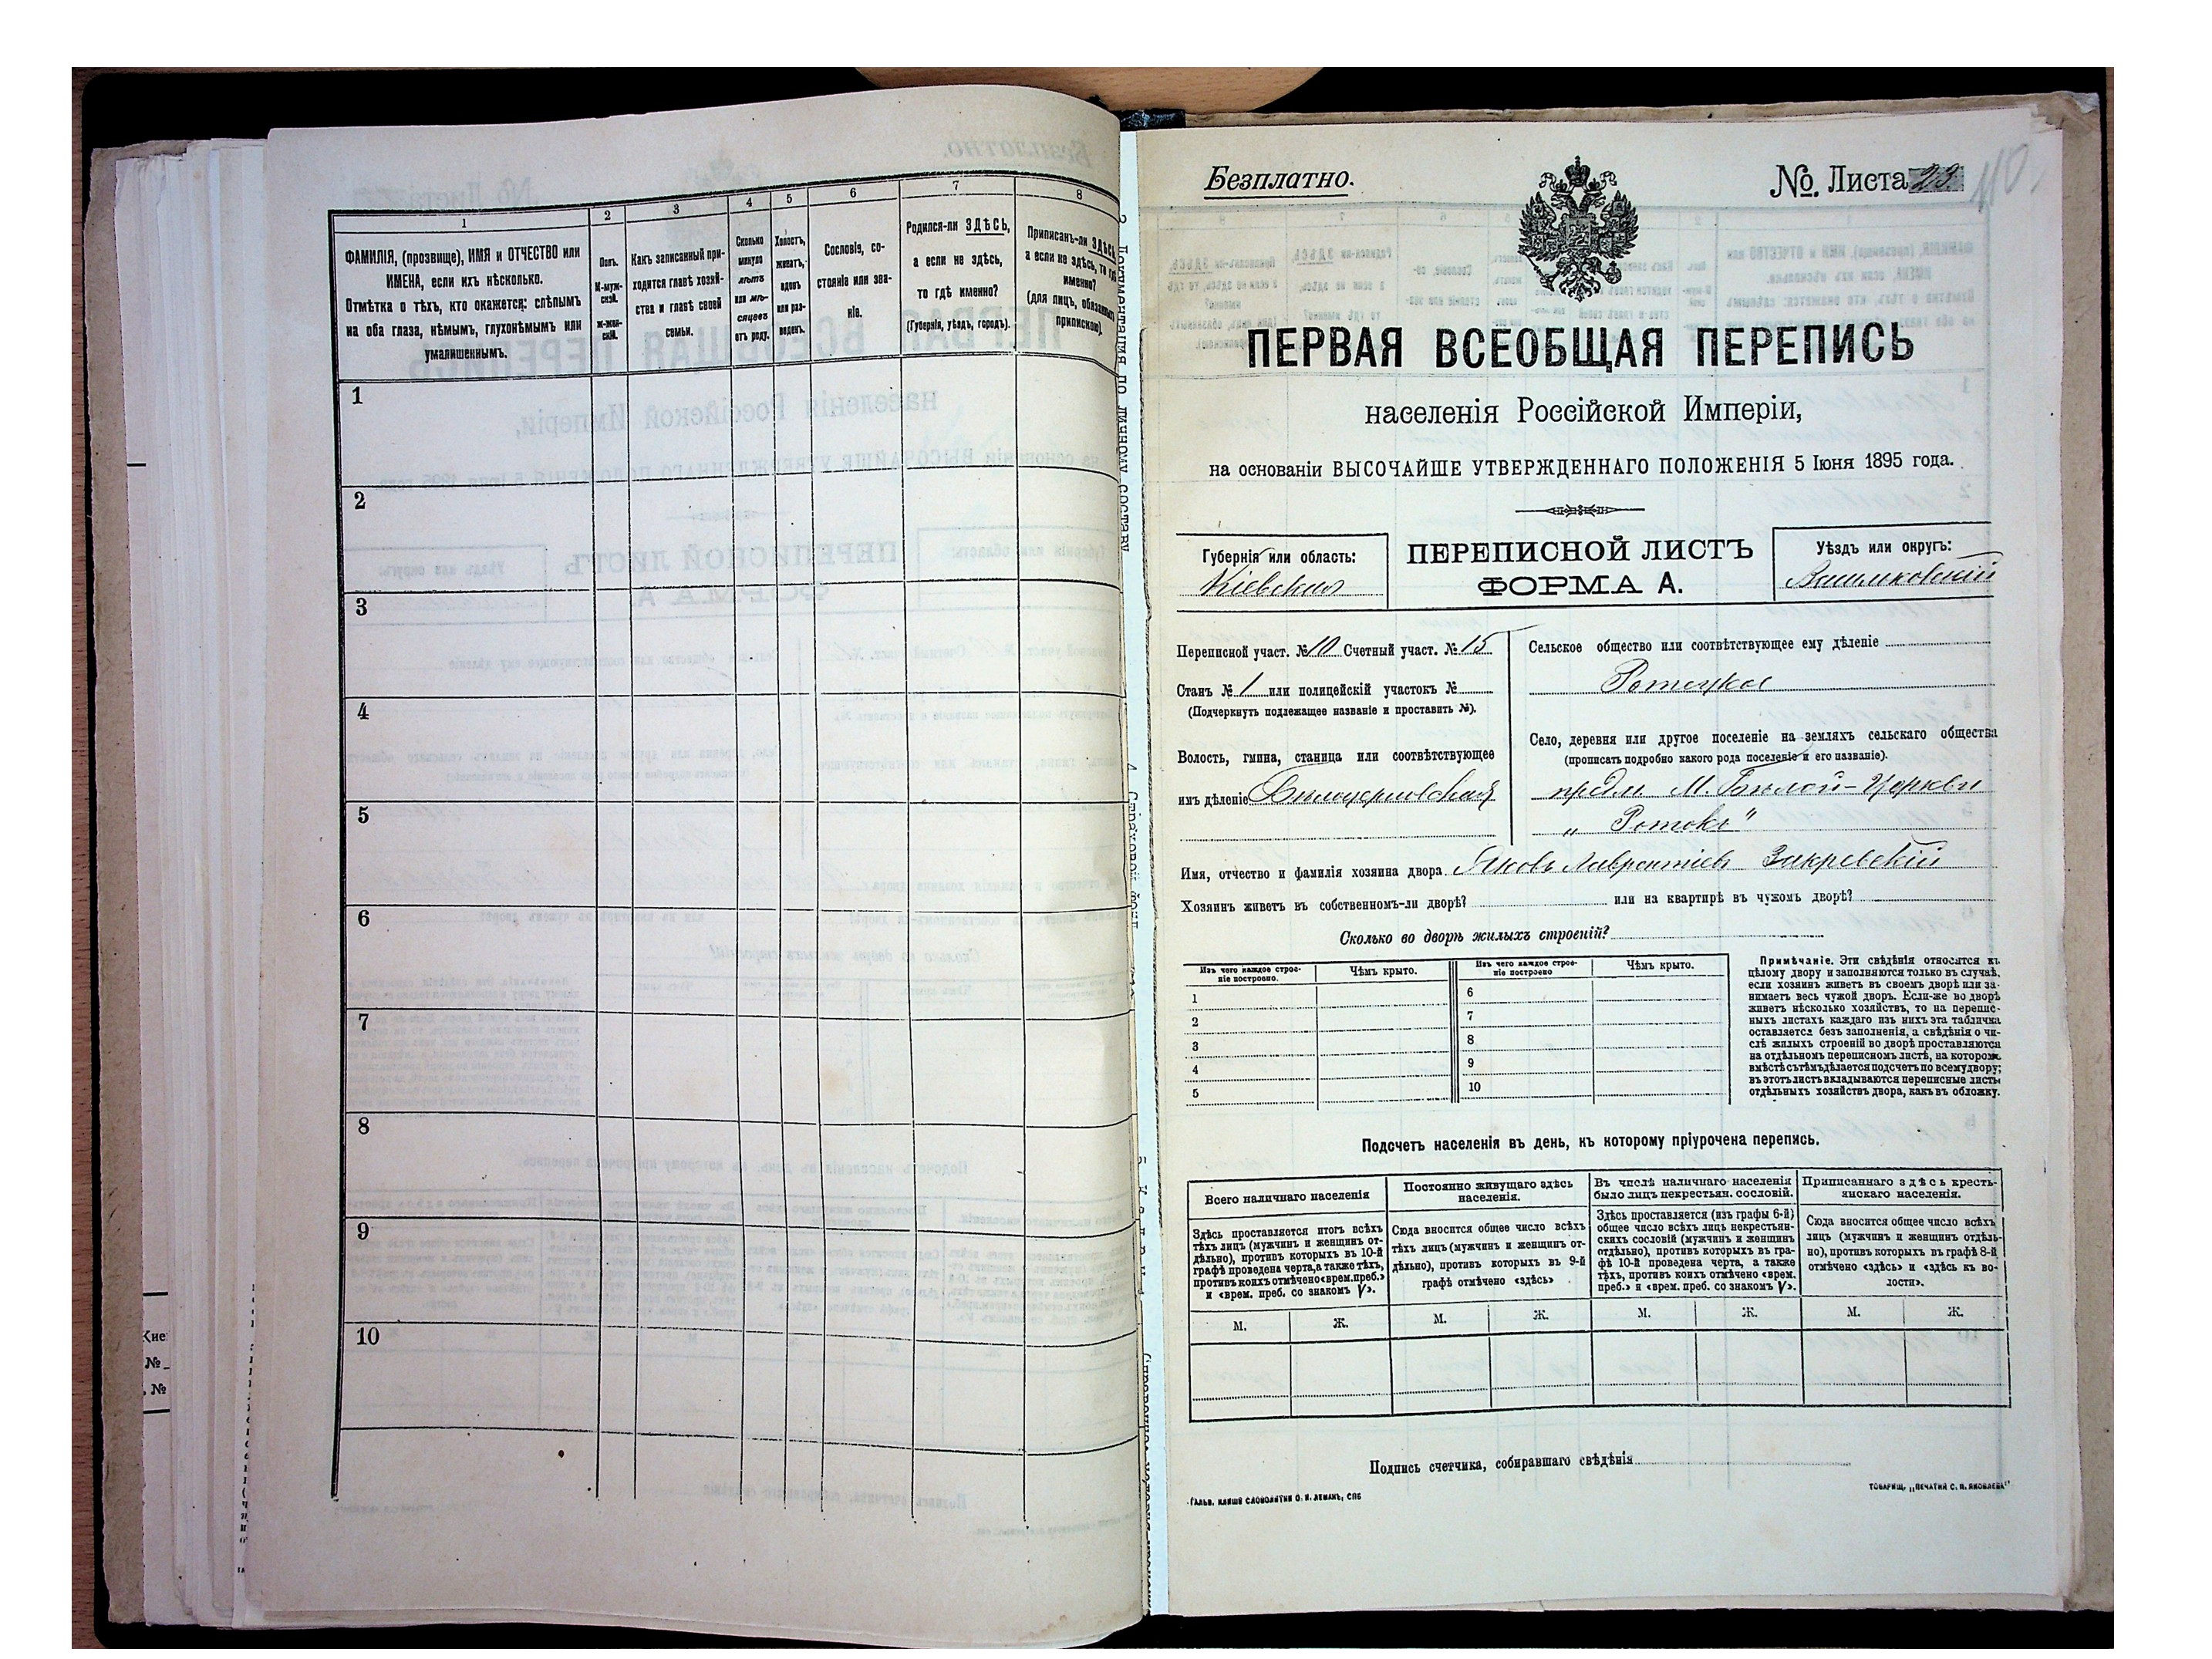 1
2
3
4
5
6
7
8
ФАМИЛІЯ, (прозвище), ИМЯ и ОТЧЕСТВО или
ИМЕНА, если ихъ нѣсколько.
Отмѣтка о тѣхъ, кто окажется: слѣпымъ
на оба глаза, нѣмымъ, глухонѣмымъ или
умалишеннымъ.
Полъ.
М-муж-
ской.
ж-жен-
скій.
Какъ записанный при-
ходится главѣ хозяй-
ства и главѣ своей
семьи.
Сколько
минуло
лѣтъ
или мѣ-
сяцевъ
отъ роду.
Холостъ,
женатъ,
вдовъ
или раз-
веденъ.
Сословіе, со-
стояніе или зва-
ніе.
Родился-ли ЗДѢСЬ,
а если не здѣсь,
то гдѣ именно?
(Губернія, уѣздъ, городъ).
Приписанъ-ли ЗДѢСЬ,
а если не здѣсь, то гдѣ
именно?
(для лицъ, обязанныхъ
припискою).
1
2
3
4
5
6
7
8
9
10
Безплатно.
№ Листа 23
ПЕРВАЯ ВСЕОБЩАЯ ПЕРЕПИСЬ
населенія Россійской Имперіи,
на основаніи ВЫСОЧАЙШЕ УТВЕРЖДЕННАГО ПОЛОЖЕНІЯ 5 Іюня 1895 года.
Губернія или область:
Кіевская
ПЕРЕПИСНОЙ ЛИСТЪ
ФОРМА А.
Уѣздъ или округъ:
Васильковскій
Переписной участ. № 10 Счетный участ. № 15
Станъ № 1 или полицейскій участокъ №
(Подчеркнуть подлежащее названіе и проставить №).
Волость, гмина, станица или соотвѣтствующее
имъ дѣленіе Бѣлоцерковская
Сельское общество или соотвѣтствующее ему дѣленіе
Ротецкое
Село, деревня или другое поселеніе на земляхъ сельскаго общества
(прописать подробно какого рода поселеніе и его названіе).
предм. М. Бѣлой-Церкви
„ Ротокъ"
Имя, отчество и фамилія хозяина двора Яковъ Лаврентіевъ Закревскій
Хозяинъ живетъ въ собственномъ-ли дворѣ? или на квартирѣ въ чужомъ дворѣ?
Сколько во дворѣ жилыхъ строеній?
Изъ чего каждое строе-
ніе построено.
Чѣмъ крыто.
Изъ чего каждое строе-
ніе построено
Чѣмъ крыто.
1
2
3
4
5
6
7
8
9
10
Примѣчаніе. Эти свѣдѣнія относятся къ
цѣлому двору и заполняются только въ случаѣ,
если хозяинъ живетъ въ своемъ дворѣ или за-
нимаетъ весь чужой дворъ. Если-же во дворѣ
живетъ нѣсколько хозяйствъ, то на перепис-
ныхъ листахъ каждаго изъ нихъ эта табличка
оставляется безъ заполненія, а свѣдѣнія о чи-
слѣ жилыхъ строеній во дворѣ проставляются
на отдѣльномъ переписномъ листѣ, на которомъ
вмѣстѣ съ тѣмъ дѣлается подсчетъ по всему двору;
въ этотъ листъ вкладываются переписные листы
отдѣльныхъ хозяйствъ двора, какъ въ обложку.
Подсчетъ населенія въ день, къ которому пріурочена перепись.
Всего наличнаго населенія
Здѣсь проставляется итогъ всѣхъ
тѣхъ лицъ (мужчинъ и женщинъ от-
дѣльно), противъ которыхъ въ 10-й
графѣ проведена черта, а также тѣхъ,
противъ коихъ отмѣчено «врем. преб.»
и «врем. преб. со знакомъ V».
Постоянно живущаго здѣсь
населенія.
Сюда вносится общее число всѣхъ
тѣхъ лицъ (мужчинъ и женщинъ от-
дѣльно), противъ которыхъ въ 9-й
графѣ отмѣчено «здѣсь»
Въ числѣ наличнаго населенія
было лицъ некрестьян. сословій.
Здѣсь проставляется (изъ графы 6-й)
общее число всѣхъ лицъ некрестьян-
скихъ сословій (мужчинъ и женщинъ
отдѣльно), противъ которыхъ въ гра-
фѣ 10-й проведена черта, а также
тѣхъ, противъ коихъ отмѣчено «врем.
преб.» и «врем. преб. со знакомъ V».
Приписаннаго здѣсь кресть-
янскаго населенія.
Сюда вносится общее число всѣхъ
лицъ (мужчинъ и женщинъ отдѣль-
но), противъ которыхъ въ графѣ 8-й
отмѣчено «здѣсь» и «здѣсь къ во-
лости».
М. Ж. М. Ж. М. Ж. М. Ж.
Подпись счетчика, собиравшаго свѣдѣнія
ГАЛЬВ. КЛИШЕ СЛОВОЛИТНИ О. И. ЛЕМАНЪ, СПБ
ТОВАРИЩ. „ПЕЧАТНИ С. П. ЯКОВЛЕВА"